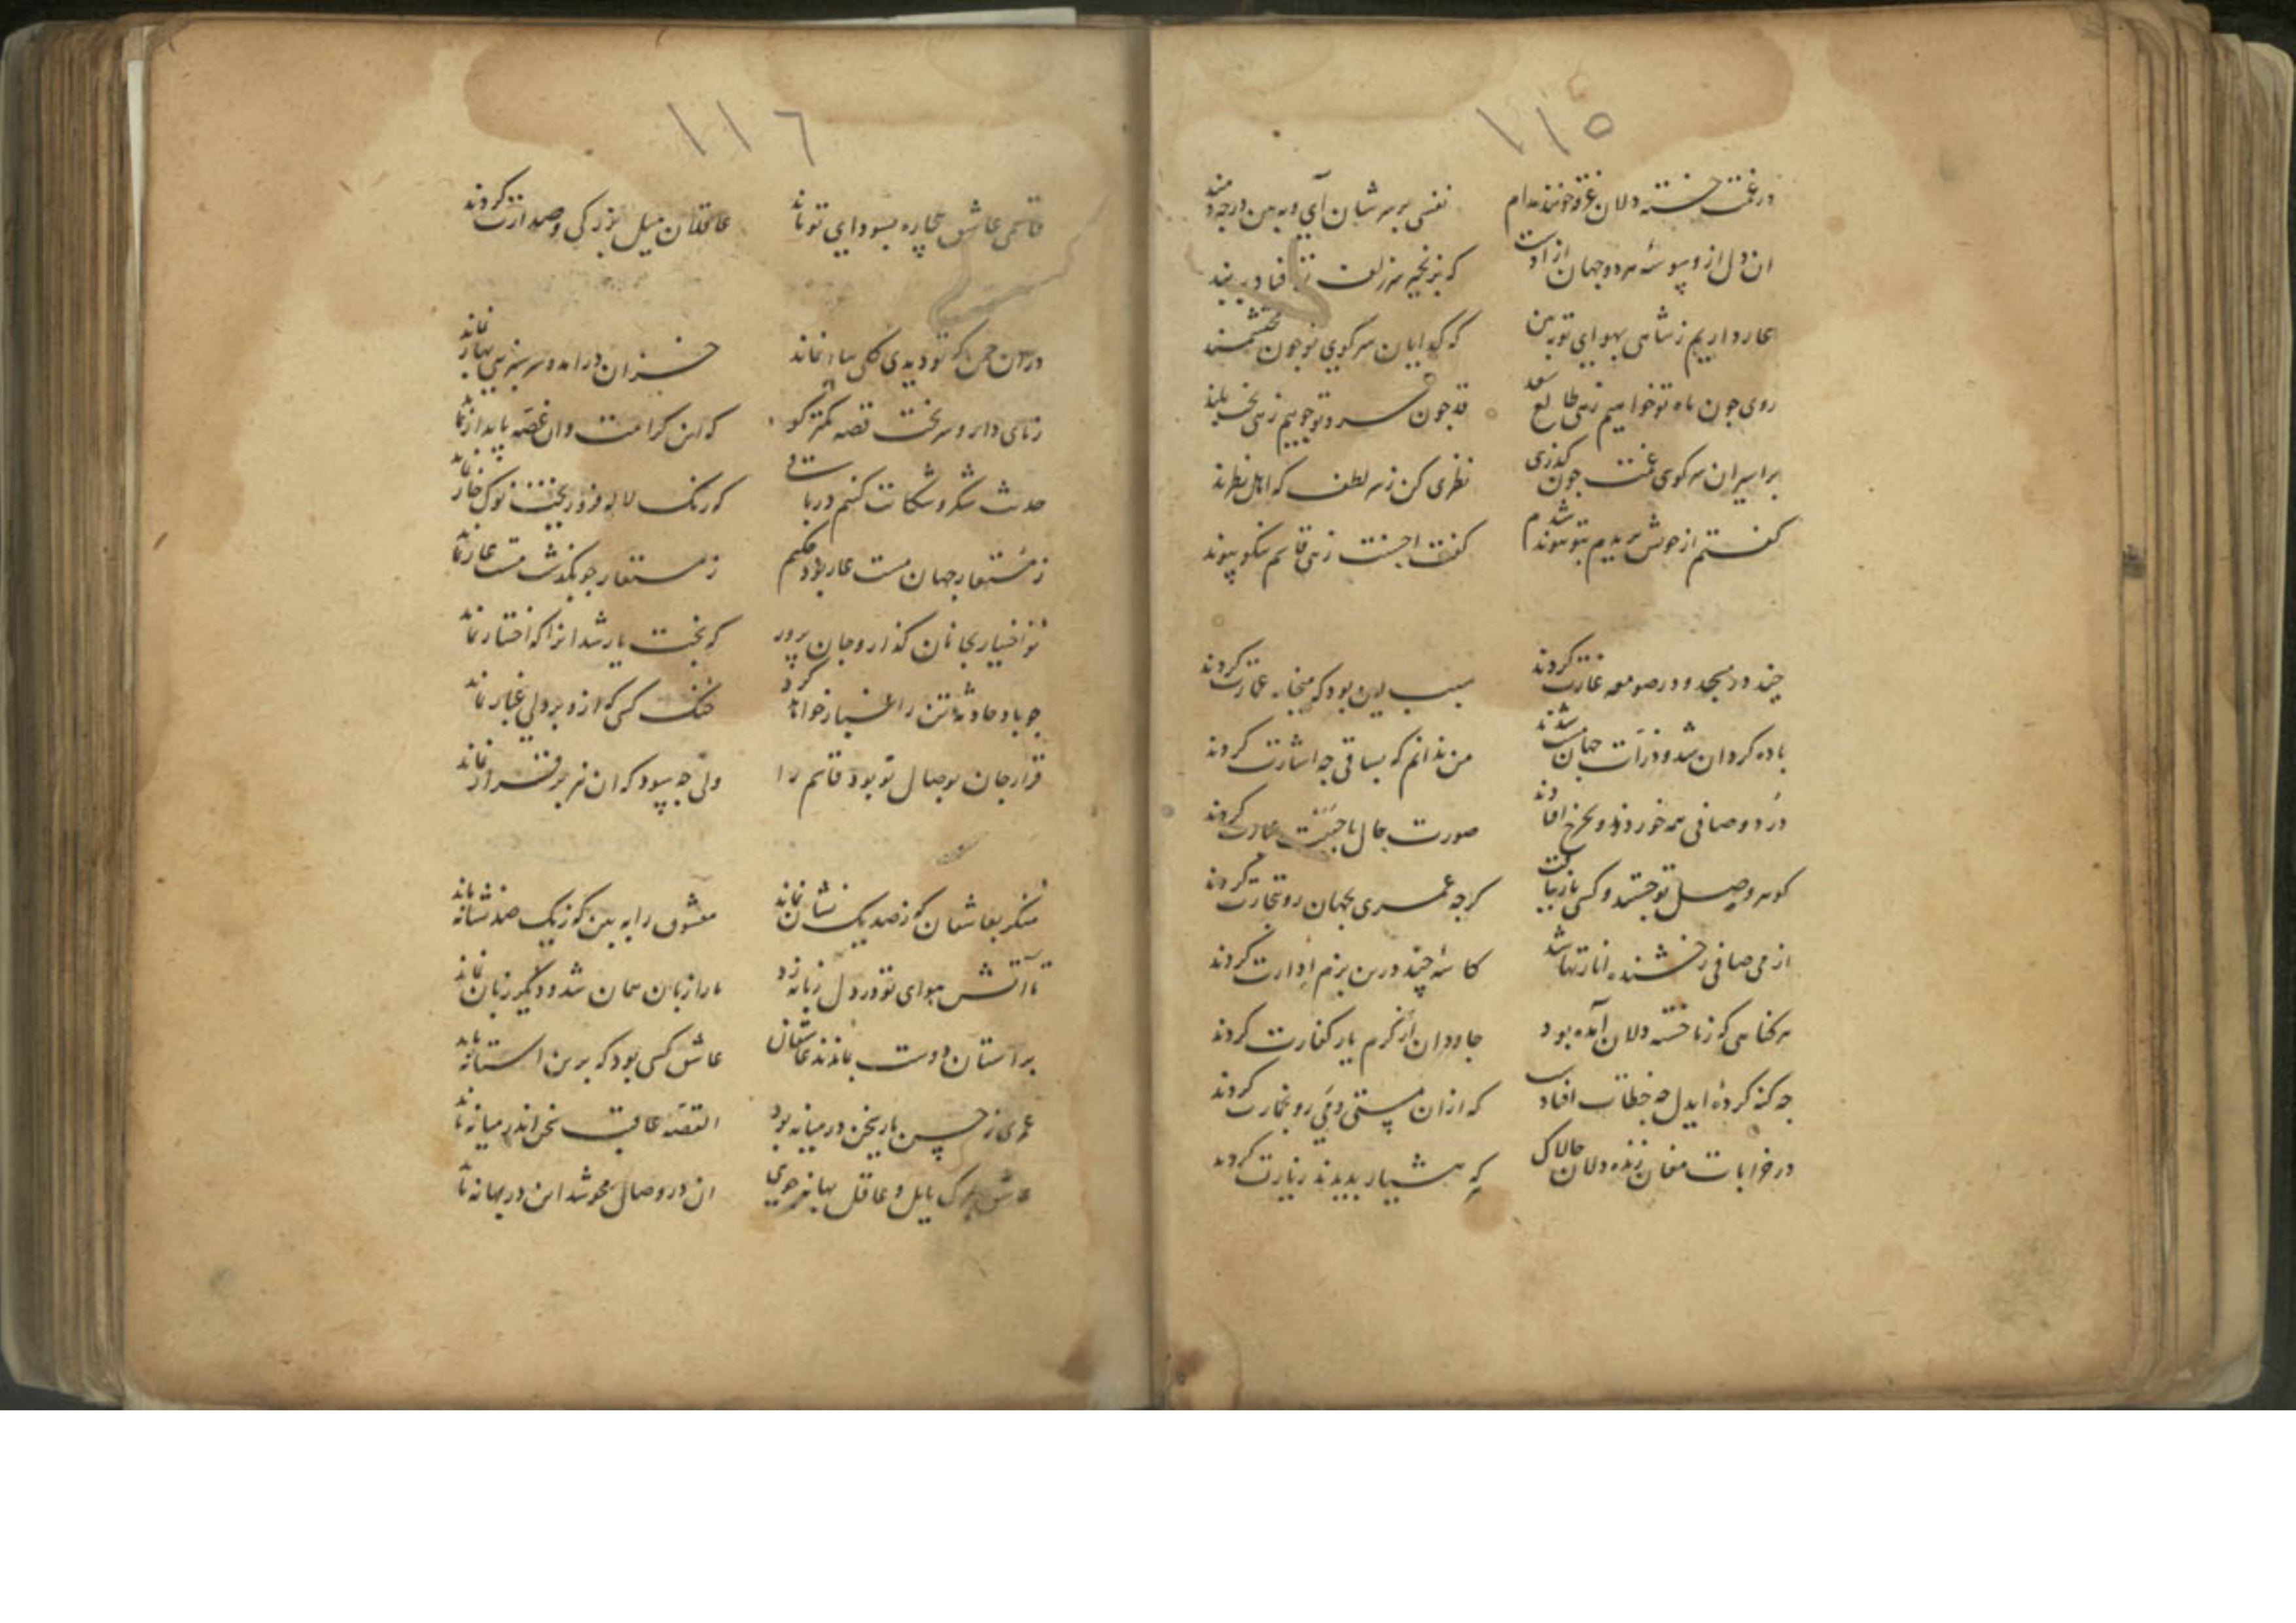 ١١٥
در غمت خسته دلان غرقه خونند مدام
نفسی بر سر شان آی و به بین درجه
ان دل از وسوسهٔ هر دو جهان ازادست
که بزنجیر سر زلف تو افتاد به بند
عار داریم ز شاهی بهوای تو به بین
که کدایان سر کوی تو جون محتشمند
روی جون ماه تو خواهیم زهی طالع سعد
قد جون سرو تو جوییم زهی بخت بلند
بر اسیران سر کوی غمت جون کذری
نظری کن ز سر لطف که اهل نظرند
کفتم از خویش بریدم بتو پیوند شدم
کفت احسنت زهی قاسم نیکو پیوند
چند در مسجد و در صومعه غارت کردند
سبب این بود که میخانه عمارت کردند
باده کردان شد و ذرات جهان مست شدند
من ندانم که بساقی جه اشارت کردند
درد و صافی همه خوردند و بچرخ افتادند
صورت حال باحسنت عبارت کردند
کوهر وصل تو جستند و کسی باز نیافت
کرجه عمری بجهان رو بتجارت کردند
از می صافی رخشنده انارتها شد
کاسهٔ چند درین بزم ادارت کردند
هر کناهی که ز ما خسته دلان آمده بود
جاودان از کرم یار کفارت کردند
جه کنه کردهٔ ایدل جه خطات افتادست
که ازان مستی و می رو بخمارت کردند
در خرابات مغان زنده دلان جالاک
که هشیار بدیدند زیارت کردند
١١٦
قاسمی عاشق بیچاره بسودای تو ماند
عاقلان میل بزرکی و صدارت کردند
دران جمن که تو دیدی کلی ببار نماند
خزان درامد و سرسبزی بهار نماند
ز نای دار و سر تخت قصه کمتر کو
که این کرامت وان غصه پایدار نماند
حدیث شکر و شکایت کنیم در باقی
که رنک لاله فرو ریخت نوک خار نماند
ز مستعار جهان هست عار بر دحکیم
ز مستعار جو بکذشت هست عار نماند
تو اختیار بجانان کذار و جان پرور
که بخت یار شد انرا که اختیار نماند
جو باد حادثه تن را غبار خواهد کرد
خنک کسی که ازو بر دلی غبار نماند
قرار جان بوصال تو بود قاسم را
ولی جه سود که ان نیز بر قرار نماند
منکر بعاشقان که ز صد یک نشان نماند
معشوق را به بین که ز یک صد نشانه ماند
تا آتش هوای تو در دل زبانه زد
ما را زبان همان شد و دیکر زبان نماند
بر استان دوست بماندند عاشقان
عاشق کسی بود که برین استانه ماند
عمری ز حسن یار سخن در میانه بود
القصه عاقبت سخن اندر میانه ماند
عاشق بترک مایل و عاقل بهانه جوی
ان در وصال محو شد این در بهانه ماند